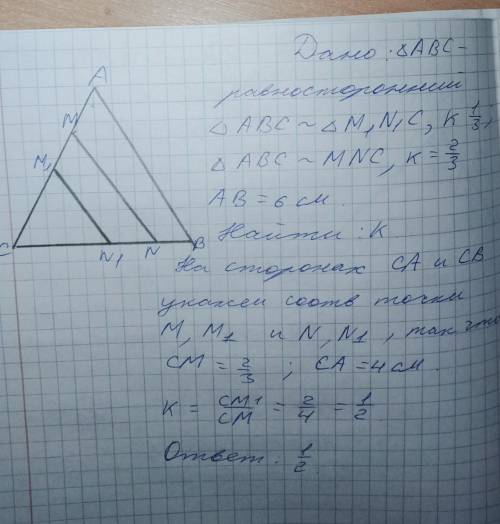 Дано: △ABC -
равносторонний
△ABC ~ △M₁N₁C, K 1/3,
△ABC ~ MNC, K = 2/3
AB = 6 см.
Найти: K
A
M
M₁
C
N₁
N
B
На сторонах CA и CB
укажем соотв точки
M, M₁ и N, N₁, так что
CM = 2/3 ; CA = 4 см.
K = CM1/CM = 2/4 = 1/2
Ответ: 1/2